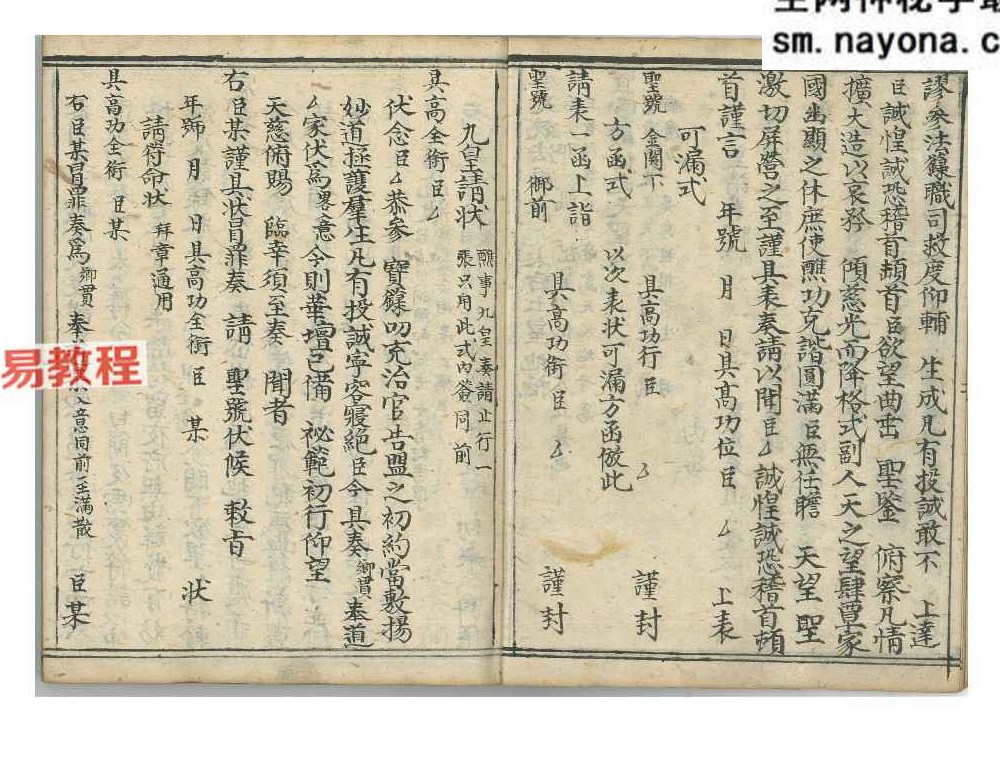 sm.nayona.c
易教程
謬參法籙職司救度仰輔 生成凡有投誠敢不 上達
臣誠惶誠恐稽首頓首臣欲望曲垂 聖鑒 俯察凡情
擴大造以哀矜 頒慈光而降格式副人天之望肆覃家
國幽顯之休庶使醮功克諧圓滿臣無任瞻 天望 聖
激切屏營之至謹具表奏請以聞臣厶 誠惶誠恐稽首頓
首謹言 年號 月 日具髙功位臣 厶 上表
可漏式
聖號 金闕下 具高功行臣 厶 謹封
方函式 以次表狀可漏方函倣此
請表一函上詣
聖號 御前 具高功銜臣 厶 謹封
九皇請狀 醮事九皇奏請止行一張只用此式内簽同前
具高功全銜臣厶
伏念臣厶恭參 寶籙叨充治官告盟之初約當敷揚
妙道拯護羣生凡有投誠寧容寢絶臣今具奏鄉貫奉道
厶家伏爲畧意今則華壇已備 祕範初行仰望
天慈俯賜 臨幸須至奏 聞者
右臣某謹具狀冒罪奏 請 聖號伏候 敕旨
年號 月 日具高功全銜臣 某 狀
請得命狀 拜章通用
具高功全銜臣某
右臣某冒罪奏爲鄉貫奉 入意同前至滿散 臣某